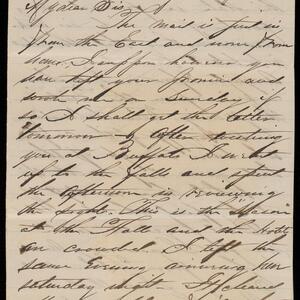 My dear Sis
The mail is just in
from the East and none from
you. I suppose hearing you
had left your promised and
wrote me on Sunday if
so I shall get this letter
tommorow after writing
you at Buffalo I went
up to the Falls and spent
the afternoon in reviewing
the sights. This is the Season
at the Falls and the Hotels
are crowded. I left the
same Evening arriving here
saturday night